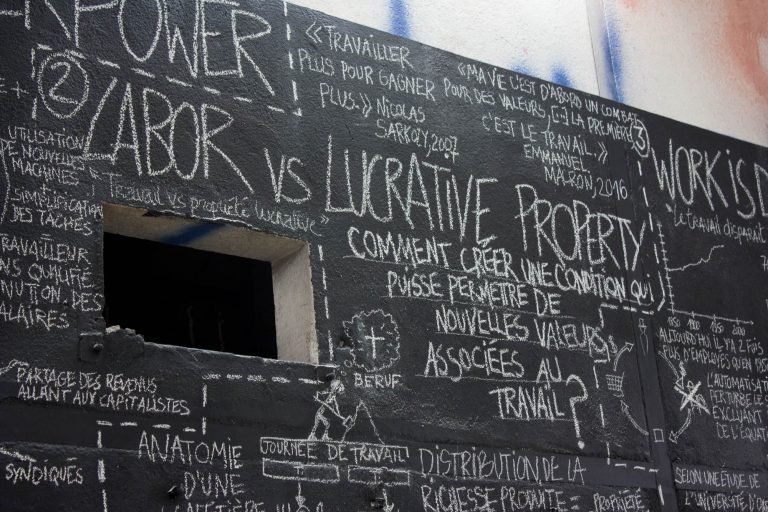 POWER
2
LABOR
VS
LUCRATIVE PROPERTY
"Travail vs propriété lucrative"
UTILISATION
DE NOUVELLES
MACHINES
SIMPLIFICATION
DES TÂCHES
TRAVAILLEUR
QUALIFIÉ
DES
SALAIRES
<<TRAVAILLER
PLUS POUR GAGNER
PLUS.>> NICOLAS
SARKOZY, 2007
<<MA VIE C'EST D'ABORD UN COMBAT
POUR DES VALEURS, [-] LA PREMIÈRE
C'EST LE TRAVAIL.>>
EMMANUEL
MACRON, 2016
COMMENT CRÉER UNE CONDITION QUI
PUISSE PERMETRE DE
NOUVELLES VALEURS
ASSOCIÉES AU
TRAVAIL ?
BERUF
PARTAGE DES REVENUS
ALLANT AUX CAPITALISTES
SYNDIQUÉS
ANATOMIE
D'UNE
JOURNÉE DE TRAVAIL
T T
DISTRIBUTION DE LA
RICHESSE PRODUITE =
PROPRIÉTÉ
3
WORK IS D
"Le travail disparait
1850 1900 1950 2000
AUJOURD'HUI IL Y A 2 FOIS
PLUS D'EMPLOYÉS QU'EN
L'AUTOMATISA
PERTURBE LE
EXCLUANT
DE L'ÉQUAT
SELON UNE ÉTUDE DE
L'UNIVERSITÉ D'O